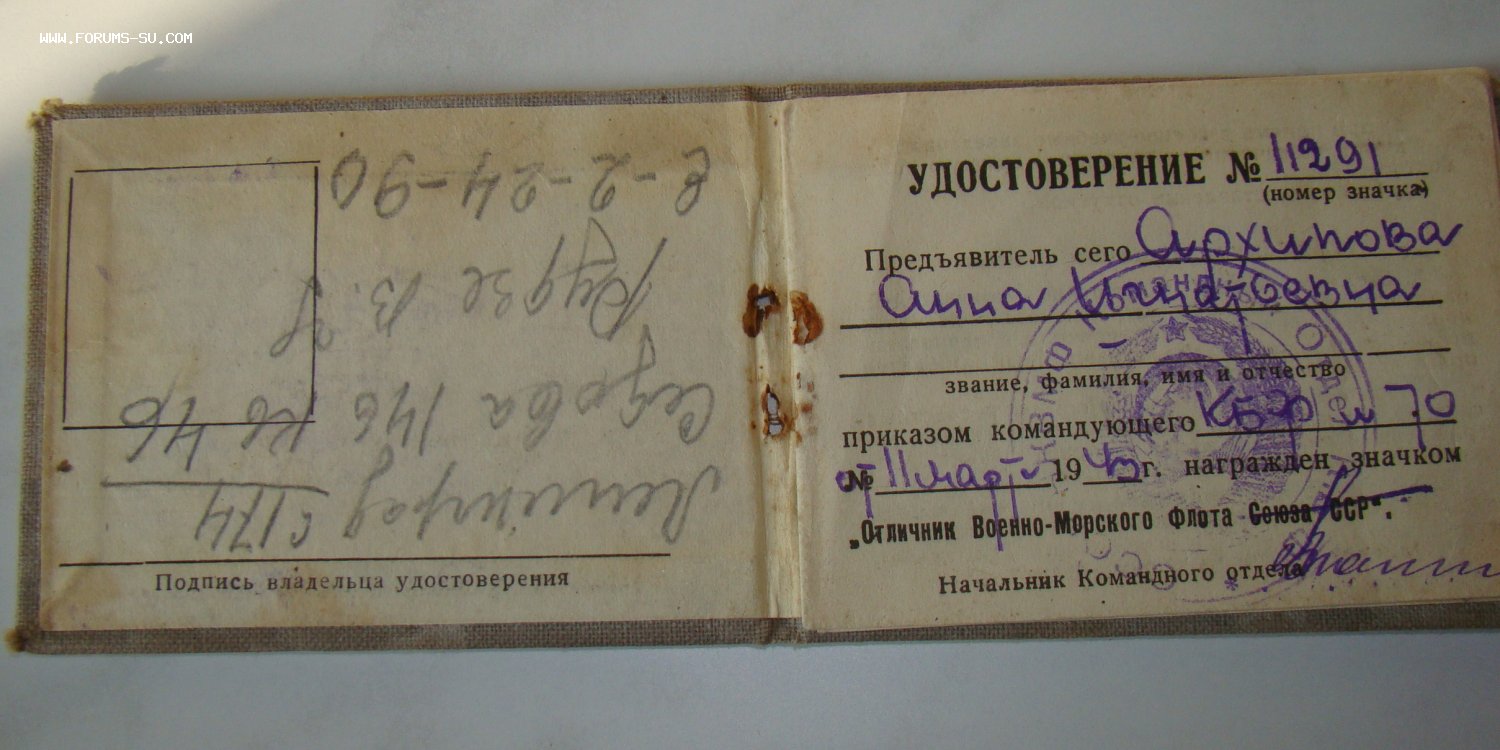 WWW.FORUMS-SU.COM
Ленинград С174
Седова 146 кв 46
Рудзе В.
2-24-90
Подпись владельца удостоверения
УДОСТОВЕРЕНИЕ № 11291
(номер значка)
Предъявитель сего Архипова
Анна Игнатьевна
звание, фамилия, имя и отчество
приказом командующего КБФ № 70
№ от 11 марта 1943 г. награжден значком
„Отличник Военно-Морского Флота Союза ССР“.
Начальник Командного отдела